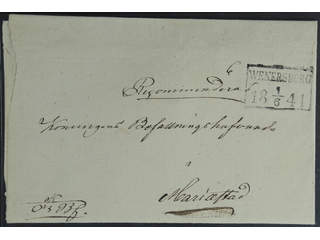 Recommenderas
WENERSBORG
18 1/6 41
Konungens Befallningshafvande
i
Mariæstad